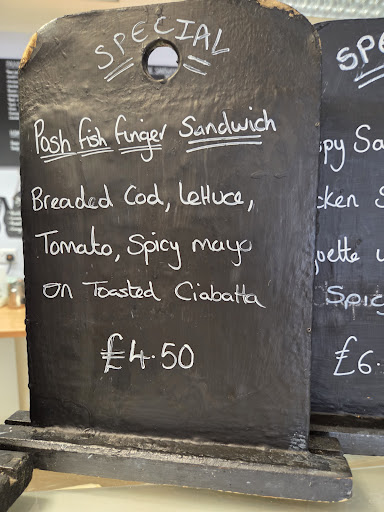 SPECIAL
Posh fish finger Sandwich
Breaded Cod, Lettuce,
Tomato, Spicy mayo
on Toasted Ciabatta
£4.50
SPE
Spic
£6.